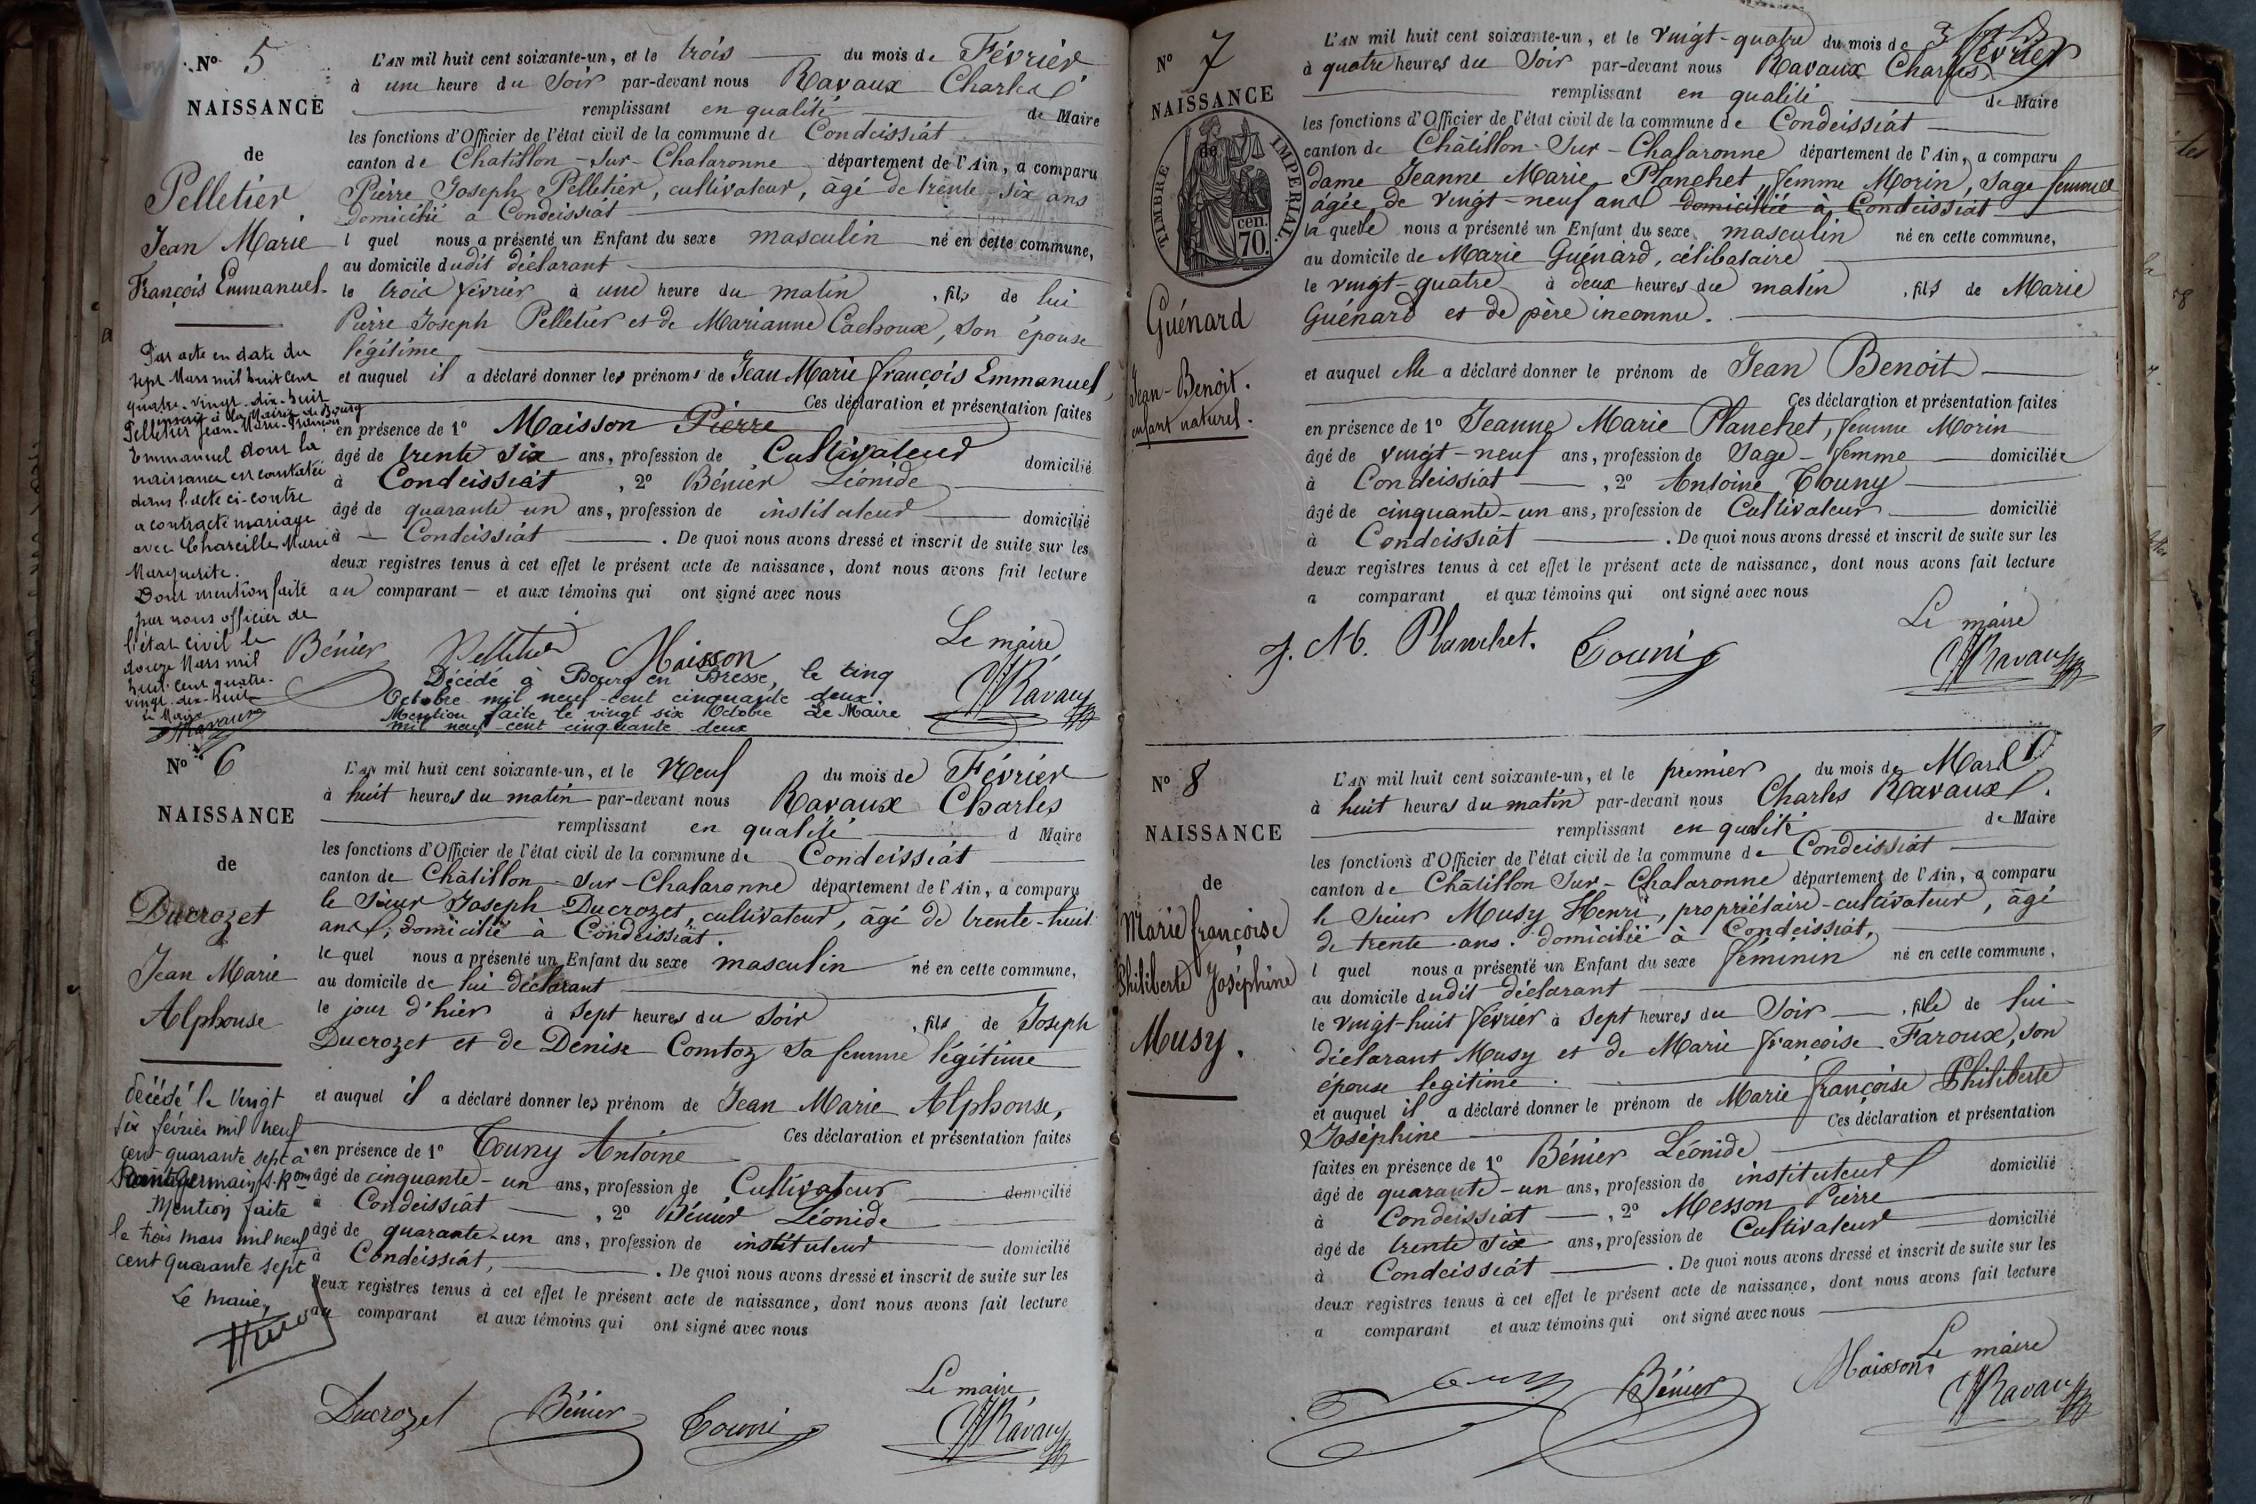 N° 5
NAISSANCE
de
Pelletier
Jean Marie
François Emmanuel.
Par acte en date du
sept Mars mil huit cent
quatre-vingt-dix-huit
inscrit à la Mairie de Bourg
Pelletier Jean-Marie-François
Emmanuel dont la
naissance est constatée
dans l'acte ci-contre
a contracté mariage
avec Chareille Marie
Marguerite.
Dont mention faite
par nous officier de
l'état civil le
douze Mars mil
huit cent quatre-
vingt-dix-huit
Le Maire
Ravaux
L'AN mil huit cent soixante-un, et le trois du mois de Février
à une heure du Soir par-devant nous Ravaux Charles
remplissant en qualité de Maire
les fonctions d'Officier de l'état civil de la commune de Condeissiat
canton de Chatillon-sur-Chalaronne département de l'Ain, a comparu
Pierre Joseph Pelletier, cultivateur, âgé de trente-six ans
domicilié à Condeissiat
l quel nous a présenté un Enfant du sexe masculin né en cette commune,
au domicile dudit déclarant
le trois février à une heure du matin, fils de lui
Pierre Joseph Pelletier et de Marianne Cachoux, son épouse
légitime
et auquel il a déclaré donner les prénoms de Jean Marie françois Emmanuel,
Ces déclaration et présentation faites
en présence de 1° Maisson Pierre
âgé de trente six ans, profession de Cultivateur domicilié
à Condeissiat, 2° Bénier Léonide
âgé de quarante un ans, profession de instituteur domicilié
à Condeissiat. De quoi nous avons dressé et inscrit de suite sur les
deux registres tenus à cet effet le présent acte de naissance, dont nous avons fait lecture
au comparant et aux témoins qui ont signé avec nous
Le maire
Bénier Pelletier Maisson
Ravaux
Décédé à Bourg en Bresse, le cinq
Octobre mil neuf-cent cinquante deux.
Mention faite le vingt six Octobre Le Maire
mil neuf-cent cinquante deux
N° 6
NAISSANCE
de
Ducrozet
Jean Marie
Alphonse
décédé le vingt
six février mil neuf
cent quarante sept à
Saint Germain s. Rom
Mention faite
le trois mars mil neuf
cent quarante sept
Le maire,
L'AN mil huit cent soixante-un, et le Neuf du mois de Février
à huit heures du matin par-devant nous Ravaux Charles
remplissant en qualité d Maire
les fonctions d'Officier de l'état civil de la commune de Condeissiat
canton de Châtillon-sur-Chalaronne département de l'Ain, a comparu
le sieur Joseph Ducrozet, cultivateur, âgé de trente-huit
ans, domicilié à Condeissiat.
le quel nous a présenté un Enfant du sexe masculin né en cette commune,
au domicile de lui déclarant
le jour d'hier à sept heures du soir, fils de Joseph
Ducrozet et de Denise Comtoz sa femme légitime
et auquel il a déclaré donner les prénom de Jean Marie Alphonse,
Ces déclaration et présentation faites
en présence de 1° Touny Antoine
âgé de cinquante-un ans, profession de Cultivateur domicilié
à Condeissiat, 2° Bénier Léonide
âgé de quarante-un ans, profession de instituteur domicilié
à Condeissiat, . De quoi nous avons dressé et inscrit de suite sur les
deux registres tenus à cet effet le présent acte de naissance, dont nous avons fait lecture
au comparant et aux témoins qui ont signé avec nous
Le maire
Ducrozet Bénier Touni Ravaux
N° 7
NAISSANCE
de
TIMBRE IMPÉRIAL.
70. cen.
Guénard
Jean-Benoit.
enfant naturel.
L'AN mil huit cent soixante-un, et le vingt-quatre du mois de février
à quatre heures du Soir par-devant nous Ravaux Charles
remplissant en qualité de Maire
les fonctions d'Officier de l'état civil de la commune de Condeissiat
canton de Châtillon-Sur-Chalaronne département de l'Ain, a comparu
dame Jeanne Marie Planchet, femme Morin, sage femme
agée de vingt-neuf ans domiciliée à Condeissiat
la quelle nous a présenté un Enfant du sexe masculin né en cette commune,
au domicile de Marie Guénard, célibataire
le vingt-quatre à deux heures du matin, fils de Marie
Guénard et de père inconnu.
et auquel elle a déclaré donner le prénom de Jean Benoit
Ces déclaration et présentation faites
en présence de 1° Jeanne Marie Planchet, femme Morin
âgé de vingt-neuf ans, profession de Sage-femme domiciliée
à Condeissiat, 2° Antoine Touny
âgé de cinquante-un ans, profession de Cultivateur domicilié
à Condeissiat. De quoi nous avons dressé et inscrit de suite sur les
deux registres tenus à cet effet le présent acte de naissance, dont nous avons fait lecture
a comparant et aux témoins qui ont signé avec nous
Le maire
J. M. Planchet. Touni Ravaux
N° 8
NAISSANCE
de
Marie françoise
Philiberte Joséphine
Musy.
L'AN mil huit cent soixante-un, et le premier du mois de Mars
à huit heures du matin par-devant nous Charles Ravaux.
remplissant en qualité de Maire
les fonctions d'Officier de l'état civil de la commune de Condeissiat
canton de Châtillon Sur-Chalaronne département de l'Ain, a comparu
le sieur Musy Henri, propriétaire-cultivateur, âgé
de trente-ans. domicilié à Condeissiat,
l quel nous a présenté un Enfant du sexe féminin né en cette commune,
au domicile dudit déclarant
le vingt-huit février à sept heures du Soir, fille de lui
déclarant Musy et de Marie françoise Faroux, son
épouse legitime.
et auquel il a déclaré donner le prénom de Marie françoise Philiberte
Joséphine Ces déclaration et présentation
faites en présence de 1° Bénier Léonide
âgé de quarante-un ans, profession de instituteur domicilié
à Condeissiat, 2° Messon Pierre
âgé de trente six ans, profession de Cultivateur domicilié
à Condeissiat. De quoi nous avons dressé et inscrit de suite sur les
deux registres tenus à cet effet le présent acte de naissance, dont nous avons fait lecture
a comparant et aux témoins qui ont signé avec nous
Le maire
Bénier Maisson Ravaux